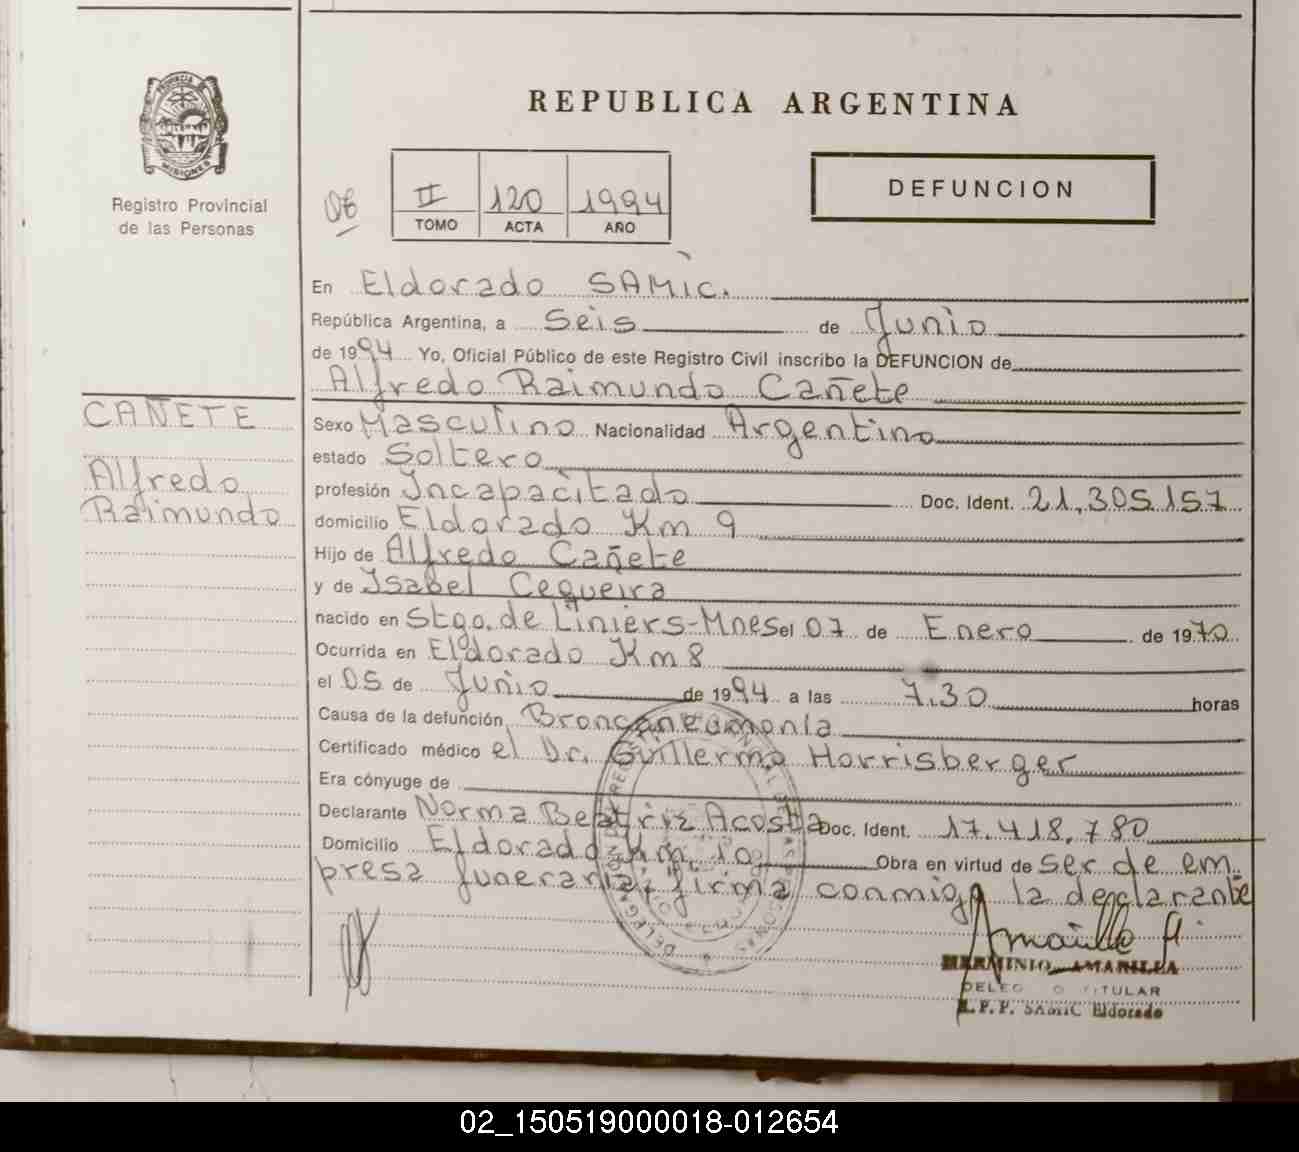 PROVINCIA DE
MISIONES
Registro Provincial
de las Personas
CAÑETE
Alfredo
Raimundo
REPUBLICA ARGENTINA
DEFUNCION
06
II 120 1994
TOMO ACTA AÑO
En Eldorado SAMIC.
República Argentina, a Seis de Junio
de 1994 Yo, Oficial Público de este Registro Civil inscribo la DEFUNCION de
Alfredo Raimundo Cañete
Sexo Masculino Nacionalidad Argentino
estado Soltero
profesión Incapacitado Doc. Ident. 21,305.157
domicilio Eldorado Km 9
Hijo de Alfredo Cañete
y de Isabel Cequeira
nacido en Stgo. de Liniers-Mnes el 07 de Enero de 1970
Ocurrida en Eldorado Km 8
el 05 de Junio de 1994 a las 7.30 horas
Causa de la defunción Bronconeumonía
Certificado médico el Dr. Guillermo Horrisberger
Era cónyuge de
Declarante Norma Beatriz Acosta Doc. Ident. 17.418.780
Domicilio Eldorado Km. 10 Obra en virtud de ser de em
presa funeraria, firma conmigo la declarante
HERMINIO AMARILLA
DELEG O TITULAR
R.P.P. SAMIC Eldorado
02_150519000018-012654